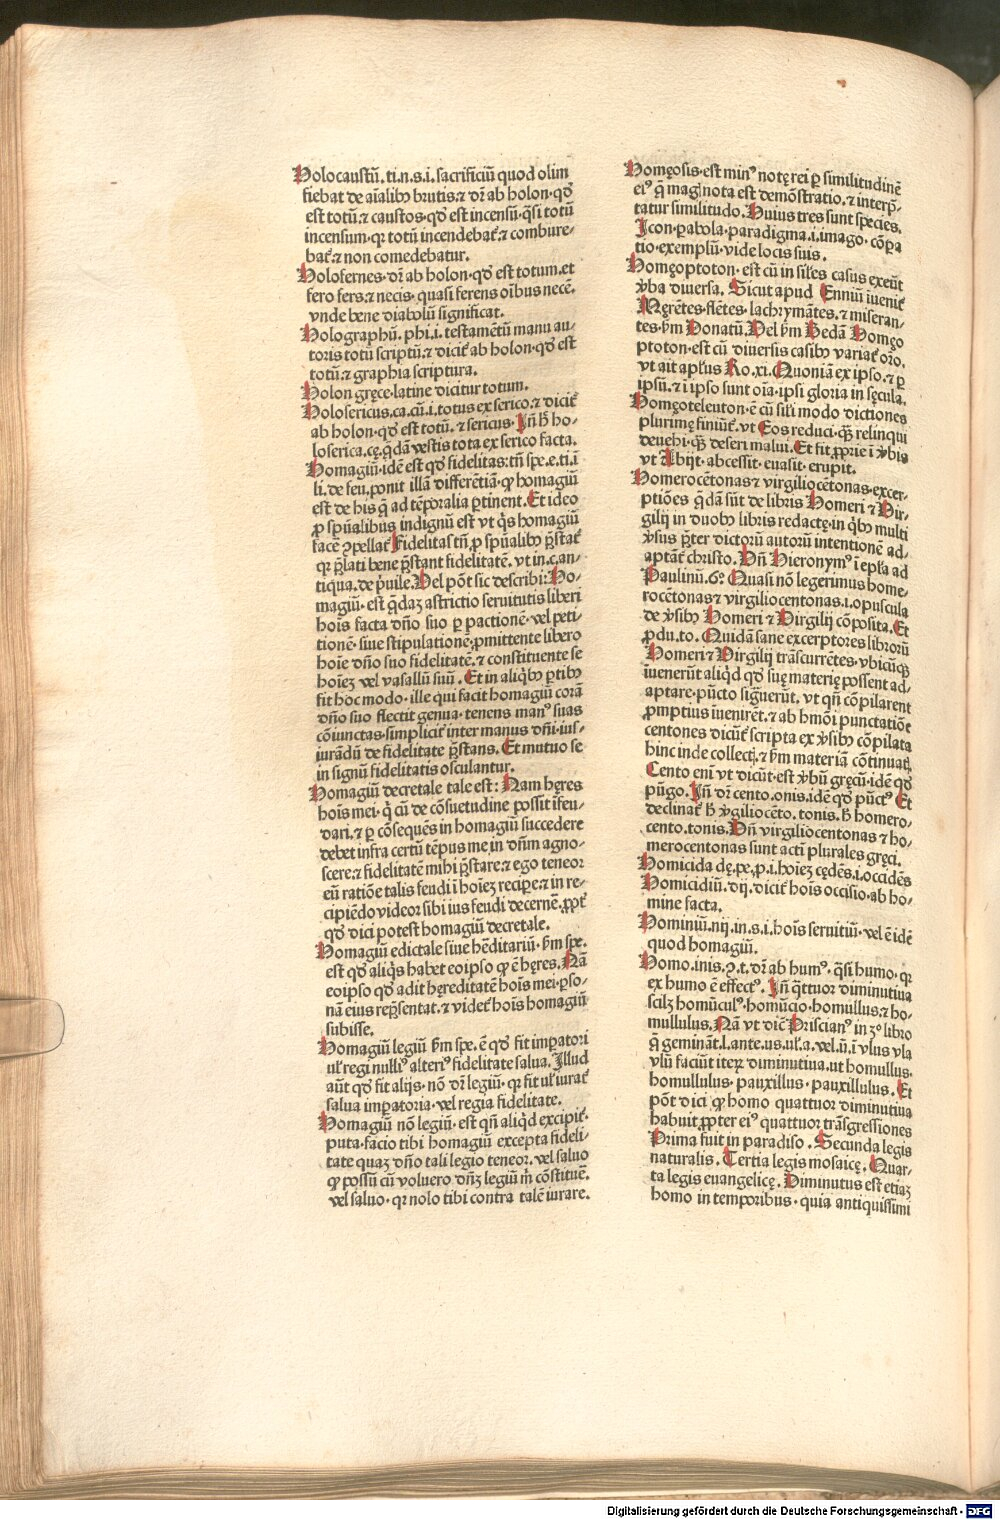 Holocaustū. ti.n.s.i. sacrificiū quod olim
fiebat de aīalibꝰ brutis. ⁊ dr̄ ab holon. qđ
est totū. ⁊ caustos. qđ est incensū. q̄si totū
incensum. qꝛ totū incendebat̄. ⁊ combure-
bat̄. ⁊ non comedebatur.
Holofernes. dr̄ ab holon. qđ est totum. et
fero fers. ⁊ necis. quasi ferens oībus necē.
vnde bene diabolū significat.
Holographū. phi.i. testamētū manu au-
toris totū scriptū. ⁊ dicit̄ ab holon. qđ est
totū. ⁊ graphia scriptura.
Holon gręce. latine dicitur totum.
Holosericus. ca. cū. i. totus ex serico. ⁊ dicit̄
ab holon. qđ est totū. ⁊ sericus. Jn̄ h̄ ho-
loserica. cę. q̄dā vestis tota ex serico facta.
Homagiū. idē est qđ fidelitas: tn̄ spe. e. ti. ī
li. de feu. ponit illā differētiā. ꝙ homagiū
est de his q̄ ad tēporalia ꝑtinent. Et ideo
ꝓ spūalibus indignū est vt q̇s homagiū
facē ꝯpellat̄. Fidelitas tn̄ ꝓ spūalibꝰ p̄stat̄
qꝛ p̄lati bene p̄stant fidelitatē. vt in. c. an-
tiqua. de ṗuile. Vel pōt sic describi: Ho-
magiū. est q̄daꝫ astrictio seruitutis liberi
hoīs facta dn̄o suo ꝑ pactionē. vel peti-
tionē. siue stipulationē. ꝓmittente libero
hoīe dn̄o suo fidelitatē. ⁊ constituente se
hoīeꝫ vel vasallū suū. Et in aliq̇bꝰ ꝑtibꝰ
fit hoc modo. ille qui facit homagiū corā
dn̄o suo flectit genua. tenens manꝰ suas
cōiunctas. simplicit̄ inter manus dn̄i. ius-
iurādū de fidelitate p̄stans. Et mutuo se
in signū fidelitatis osculantur.
Homagiū decretale tale est: Nam hęres
hoīs mei. q̇ cū de cōsuetudine possit īfeu-
dari. ⁊ ꝑ cōsequēs in homagiū succedere
debet infra certū tēpus me in dn̄m agno-
scere. ⁊ fidelitatē mihi p̄stare. ⁊ ego teneor
eū ratiōe talis feudi ī hoīeꝫ recipe. ⁊ in re-
cipiēdo videor sibi ius feudi decernē. ꝓpt̄
qđ dici potest homagiū decretale.
Homagiū edictale siue hēditariū. ẜm spe.
est qđ aliq̇s habet eoipso ꝙ ē hęres. Nā
eoipso qđ adit hęreditatē hoīs mei. ꝑso-
nā eius rep̄sentat. ⁊ videt̄ hoīs homagiū
subisse.
Homagiū legiū ẜm spe. ē qđ fit imꝑatori
uł regi nulliꝰ alteriꝰ fidelitate salua. Jllud
aūt qđ fit alijs. nō dr̄ legiū. qꝛ fit uł iurat̄
salua imꝑatoria. vel regia fidelitate.
Homagiū nō legiū. est qn̄ aliqd excipit̄.
puta. facio tibi homagiū excepta fideli-
tate quaꝫ dn̄o tali legio teneor. vel saluo
ꝙ possū cū voluero dn̄ꝫ legiū m̄ cōstituē.
vel saluo. qꝛ nolo tibi contra talē iurare.
Homęosis. est minꝰ notę rei ꝑ similitudinē
eiꝰ q̄ mag̣ nota est demōstratio. ⁊ interp̄-
tatur similitudo. Huius tres sunt species.
Jcon. ꝑabola. paradigma. i. imago. cōꝑa
tio. exemplū. vide locis suis.
Homęoptoton. est cū in siłes casus exeūt
v̄ba diuersa. Sicut apud Enniū iuenit̄
Męrētes. flētes. lachrymātes. ⁊ miseran-
tes. ẜm Donatū. Vel ẜm Bedā Homęo
ptoton. est cū diuersis casibꝰ variat̄ oro.
vt ait apłus Ro. xi. Quoniā ex ipso. ⁊ ꝑ
ipsū. ⁊ ī ipso sunt oīa. ipsi gloria in sęcula.
Homęoteleuton. ē cū siłi modo dictiones
plurimę finiūt̄. vt Eos reduci. q̄ꝫ relinqui
deuehi. q̄ꝫ deseri malui. Et fit ꝓprie ī v̄bis
vt Abijt. abcessit. euasit. erupit.
Homerocētonas ⁊ virgiliocētonas. excer-
ptiōes q̄dā sūt de libris Homeri ⁊ Vir-
gilij in duobꝰ libris redactę. in q̇bꝰ multi
v̄sus p̄ter dictorū autorū intentionē ad-
aptāt̄ christo. Vn̄ Hieronymꝰ ī epła ad
Paulinū. 6ꝰ Quasi nō legerimus home-
rocētonas ⁊ virgiliocentonas. i. opuscula
de v̄sibꝰ Homeri ⁊ Virgilij cōposita. Et
ꝓdu. to. Quidā sane excerptores librorū
Homeri ⁊ Virgilij trāscurrētes. vbicūqꝫ
īuenerūt aliq̇d qđ suę materię possent ad-
aptare. pūcto signerūt. vt qn̄ cōpilarent
ꝓmptius īuenirēt. ⁊ ab hmōi punctatiōe
centones dicūt̄ scripta ex v̄sibꝰ cōpilata
hinc inde collecti. ⁊ ẜm materiā cōtinuati.
Cento enī vt dicūt. est v̄bū gręcū. idē qđ
pūgo. Jn̄ dr̄ cento. onis. idē qđ pūctꝰ. Et
declinat̄ h̄ v̄giliocēto. tonis. h̄ homero-
cento. tonis. Vn̄ virgiliocentonas ⁊ ho-
merocentonas sunt acti plurales gręci.
Homicida dę. pe. ꝓ. i. hoīeꝫ cędēs. i. occidēs
Homicidiū. dij. dicit̄ hoīs occisio. ab ho-
mine facta.
Hominiū. nij. in. s. i. hoīs seruitiū. vel ē idē
quod homagiū.
Homo. inis. ꝯ. t. dr̄ ab humꝰ. q̄si humo. qꝛ
ex humo ē effectꝰ. Jn̄ q̄ttuor diminutiua
scilꝫ homūculꝰ. homūcio. homullus. ⁊ ho-
mullulus. Nā vt dic̄ Priscianꝰ in 3º libro
q̄ gemināt. l. ante. us. uł. a. vel. ū. ī vlus vla
vlū faciūt iteꝝ diminutiua. ut homullus.
homullulus. pauxillus. pauxillulus. Et
pōt dici ꝙ homo quattuor diminutiua
habuit ꝓpter eiꝰ quattuor trāsgressiones
Prima fuit in paradiso. Secunda legis
naturalis. Tertia legis mosaicę. Quar-
ta legis euangelicę. Diminutus est etiaꝫ
homo in temporibus. quia antiquissimi
Digitalisierung gefördert durch die Deutsche Forschungsgemeinschaft - DFG